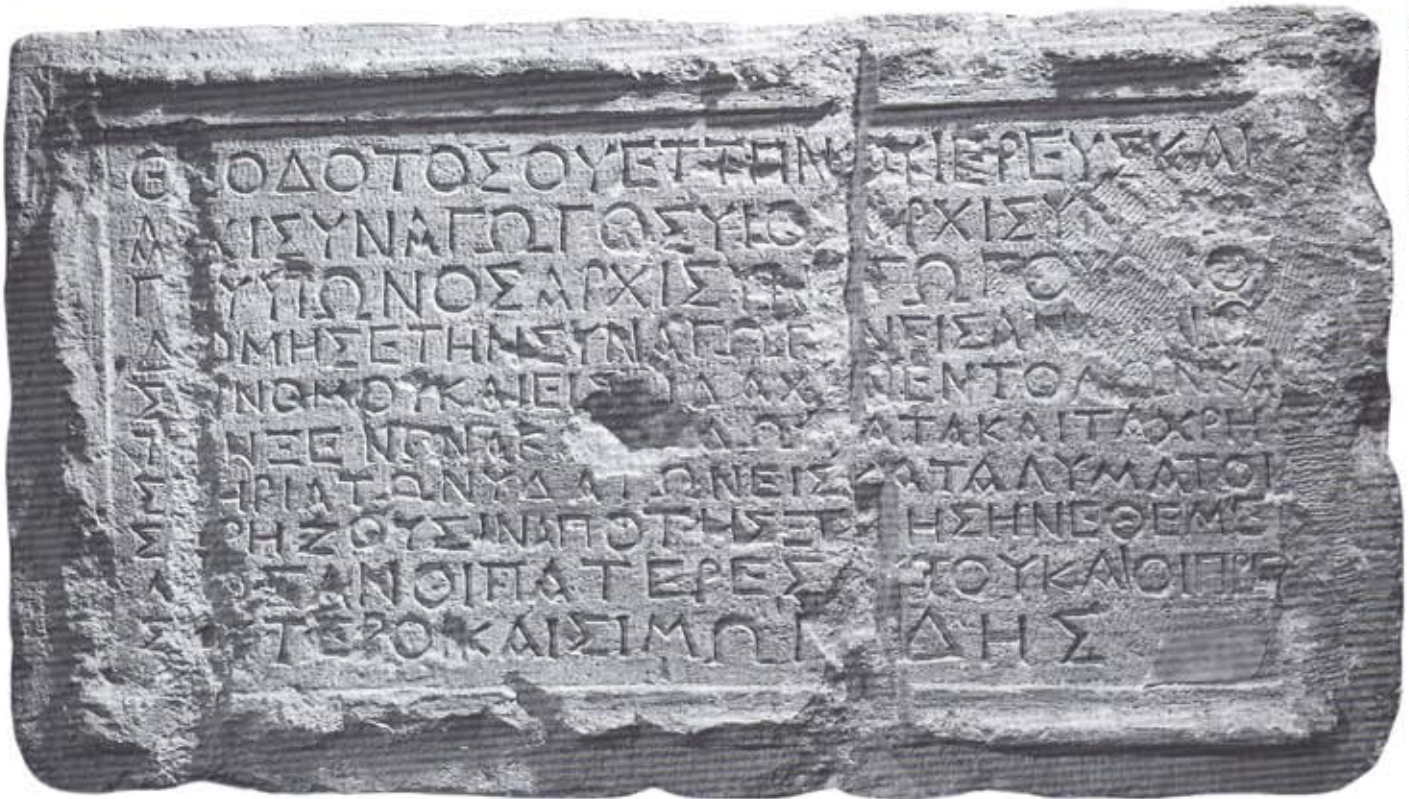 ΘΕΟΔΟΤΟΣ ΟΥΕΤΤΗΝΟΥ ΙΕΡΕΥΣ ΚΑΙ
ΑΡΧΙΣΥΝΑΓΩΓΟΣ ΥΙΟΣ ΑΡΧΙΣΥ
Γ Υ ΥΙΩΝΟΣ ΑΡΧΙΣΥΝ ΓΩΓΟΥ Ω Ο
Δ ΟΜΗΣΕ ΤΗΝ ΣΥΝΑΓΩΓ Ν ΕΙΣ ΑΝ ΝΩ
Σ Ν ΝΟΜΟΥ ΚΑΙ ΕΙΣ ΔΙΔΑΧ Ν ΕΝΤΟΛΩΝ ΚΑΙ
Τ Ν ΞΕΝΩΝΑ Κ ΔΩΜΑΤΑ ΚΑΙ ΤΑ ΧΡΗ
Σ ΗΡΙΑ ΤΩΝ ΥΔΑΤΩΝ ΕΙΣ ΚΑΤΑΛΥΜΑ ΤΟΙ
Σ ΡΗΖΟΥΣΙΝ ΑΠΟ ΤΗΣ ΞΕ ΗΣ ΗΝ ΕΘΕΜΕΛΙ
Ω ΣΑΝ ΟΙ ΠΑΤΕΡΕΣ Α ΤΟΥ ΚΑΙ ΟΙ ΠΡΕ
Σ ΥΤΕΡΟΙ ΚΑΙ ΣΙΜΩΝ ΔΗΣ